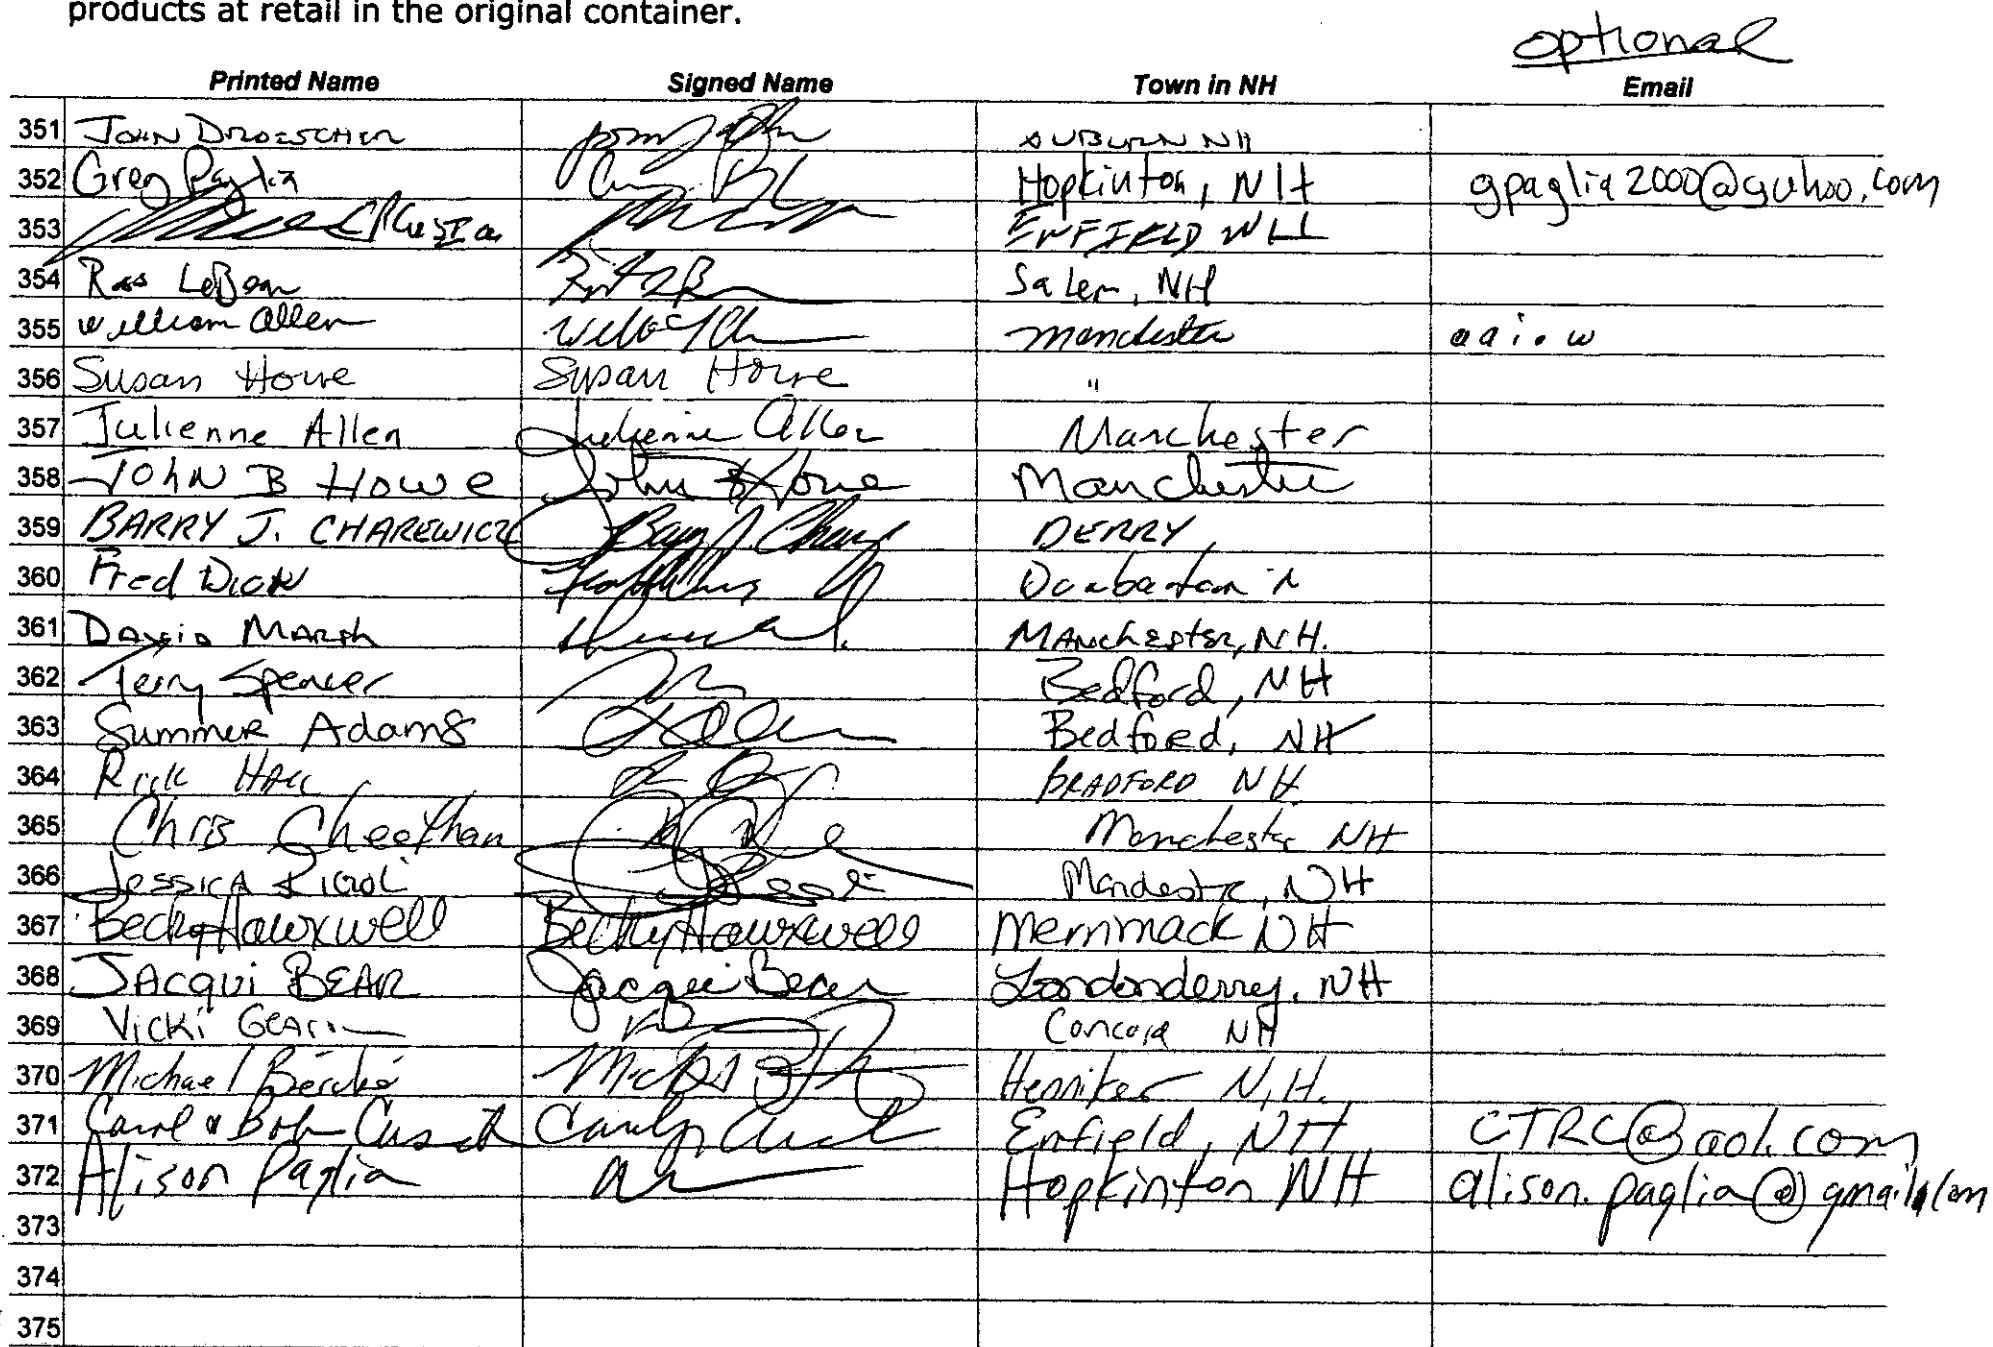 products at retail in the original container.
optional
Printed Name Signed Name Town in NH Email
351 JOHN DROESCHER AUBURN NH
352 Greg Paglia Hopkinton, NH gpaglia2000@yahoo.com
353 ENFIELD NH
354 LeBeau Salem, NH
355 William Allen Manchester
356 Susan Howe Susan Howe "
357 Julienne Allen Julienne Allen Manchester
358 JOHN B Howe John B Howe Manchester
359 BARRY J. CHAREWICZ DERRY
360 Fred Dunbarton
361 DAVID MARSH MANCHESTER, NH.
362 Terry Spencer Bedford, NH
363 Summer Adams Bedford, NH
364 Rick HALL BRADFORD NH
365 Chris Cheetham Manchester NH
366 JESSICA Manchester, NH
367 Becky Hawxwell Becky Hawxwell Merrimack NH
368 JACQUI BEAR Jacqui Bear Londonderry, NH
369 Vicki Concord NH
370 Michael Henniker N.H.
371 Carol & Bob Enfield, NH CTRC@aol.com
372 Alison Paglia Hopkinton NH alison.paglia@gmail.com
373
374
375